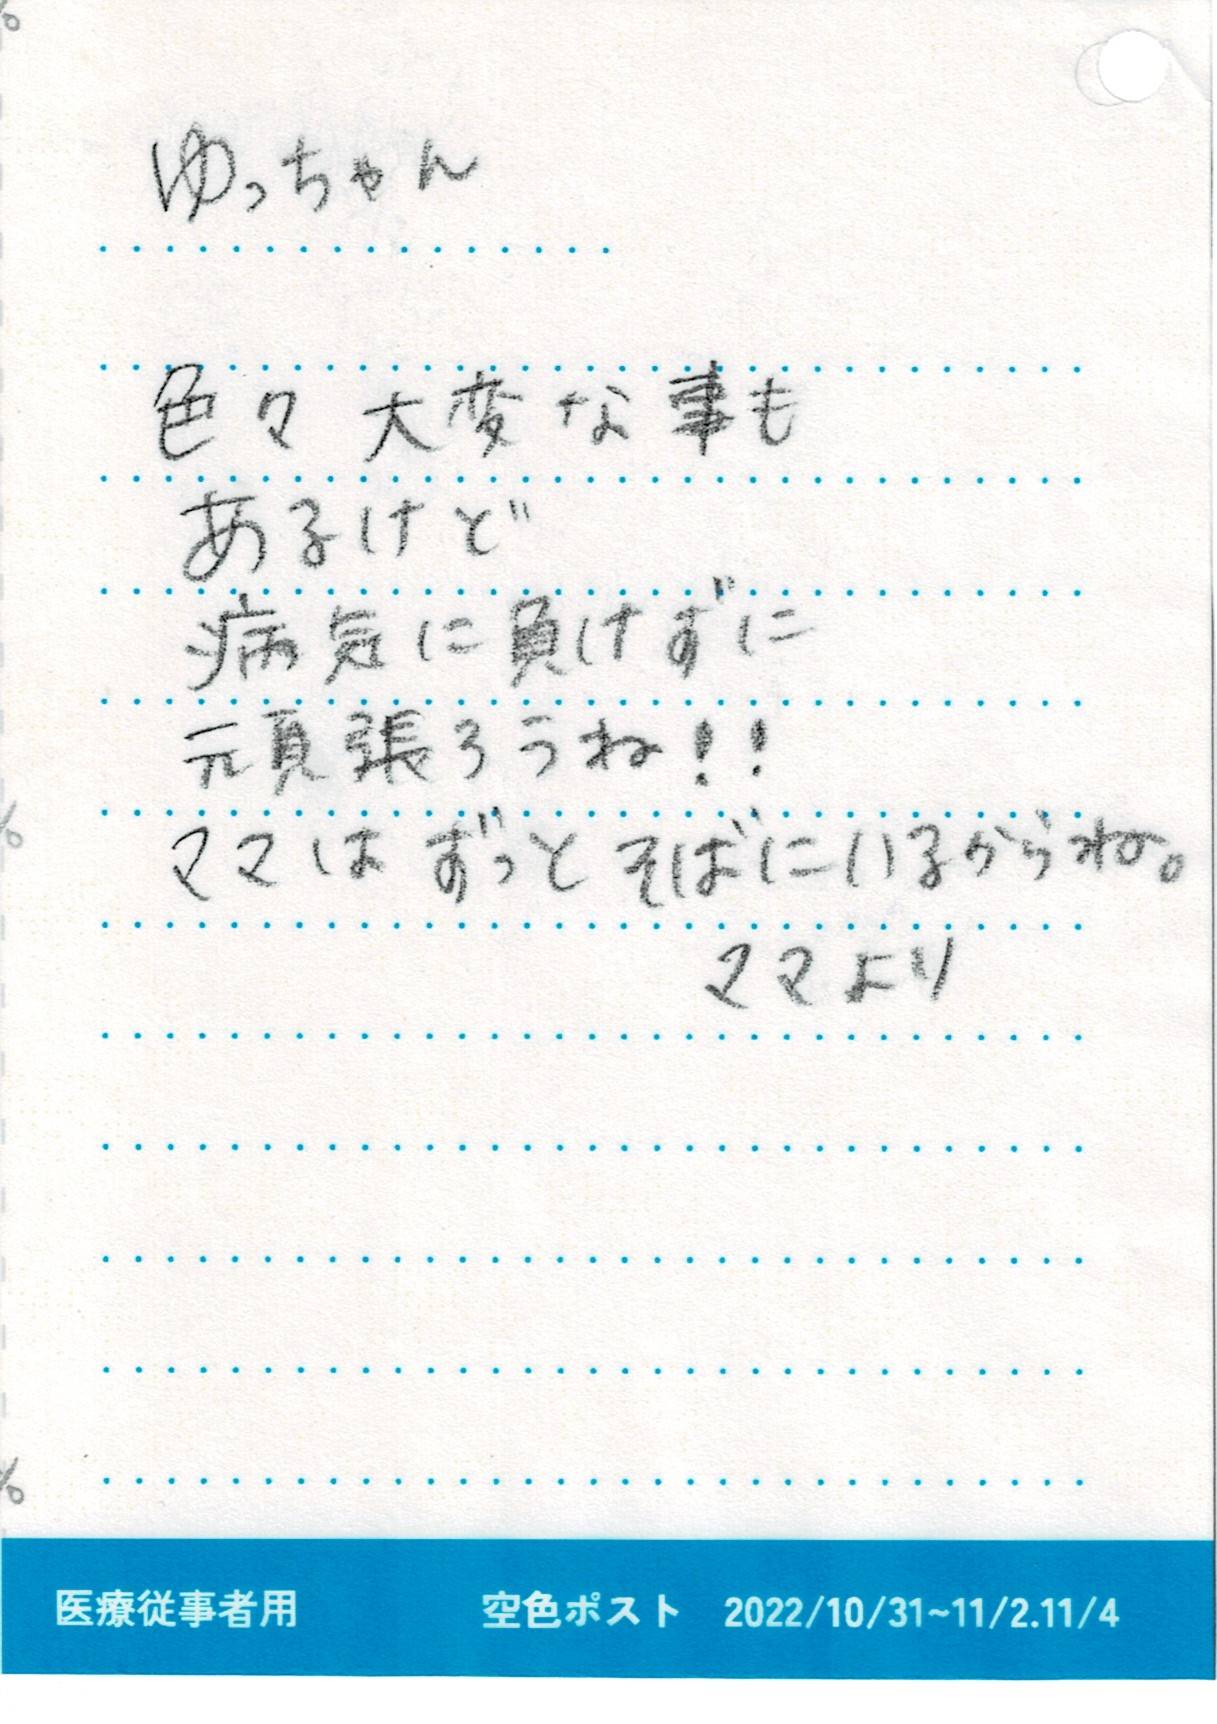 ゆっちゃん
色々大変な事も
あるけど
病気に負けずに
頑張ろうね！！
ママはずっとそばにいるからね。
ママより
医療従事者用 空色ポスト 2022/10/31~11/2.11/4